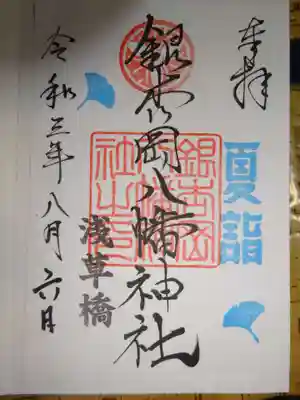 奉拝
夏詣
銀杏岡八幡神社
浅草橋
令和三年八月六日